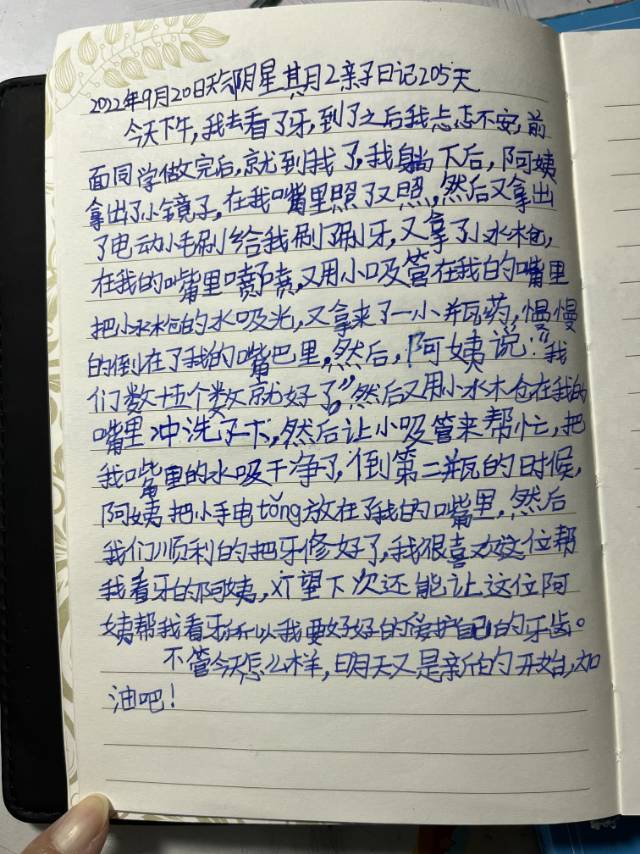 2022年9月20日天气阴星其月2亲子日记205天
今天下午,我去看了牙,到了之后我忐忑不安,前
面同学做完后,就到我了,我躺下后,阿姨
拿出了小镜子,在我嘴里照了又照,然后又拿出
了电动小毛刷给我刷了刷牙,又拿了小水枪,
在我的嘴里喷喷,又用小吸管在我的嘴里
把小水枪的水吸光,又拿来了一小瓶药,慢慢
的倒在了我的嘴巴里,然后,阿姨说:“我
们数十五个数就好了”,然后又用小水枪在我的
嘴里冲洗了下,然后让小吸管来帮忙,把
我嘴里的水吸干净了,倒第二瓶的时候,
阿姨把小手电tǒng放在了我的嘴里,然后
我们顺利的把牙修好了,我很喜欢这位帮
我看牙的阿姨,希望下次还能让这位阿
姨帮我看牙所以我要好好的爱护自己的牙齿。
不管今天怎么样,明天又是新的开始,加
油吧!